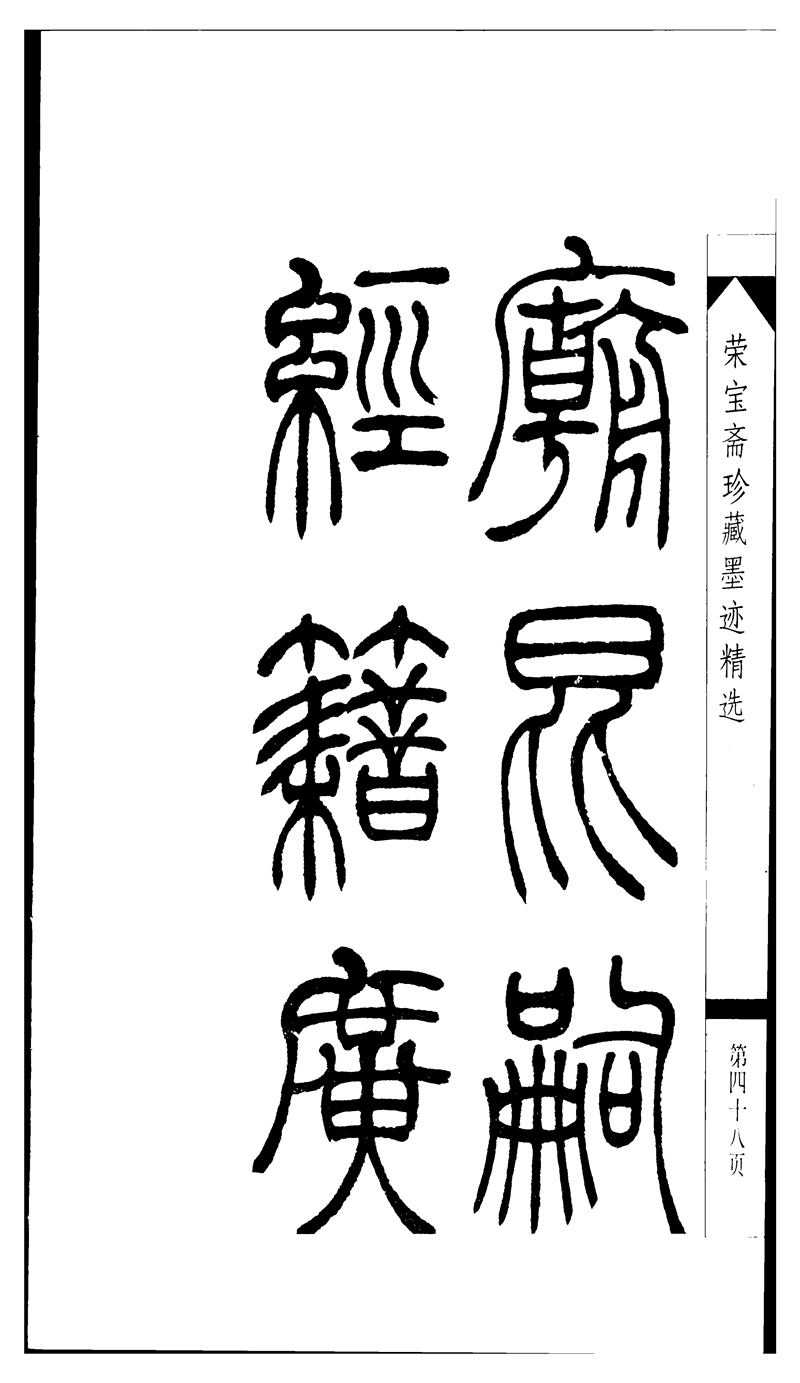 荣宝斋珍藏墨迹精选
第四十八页
廟昆嗣
經籍廣